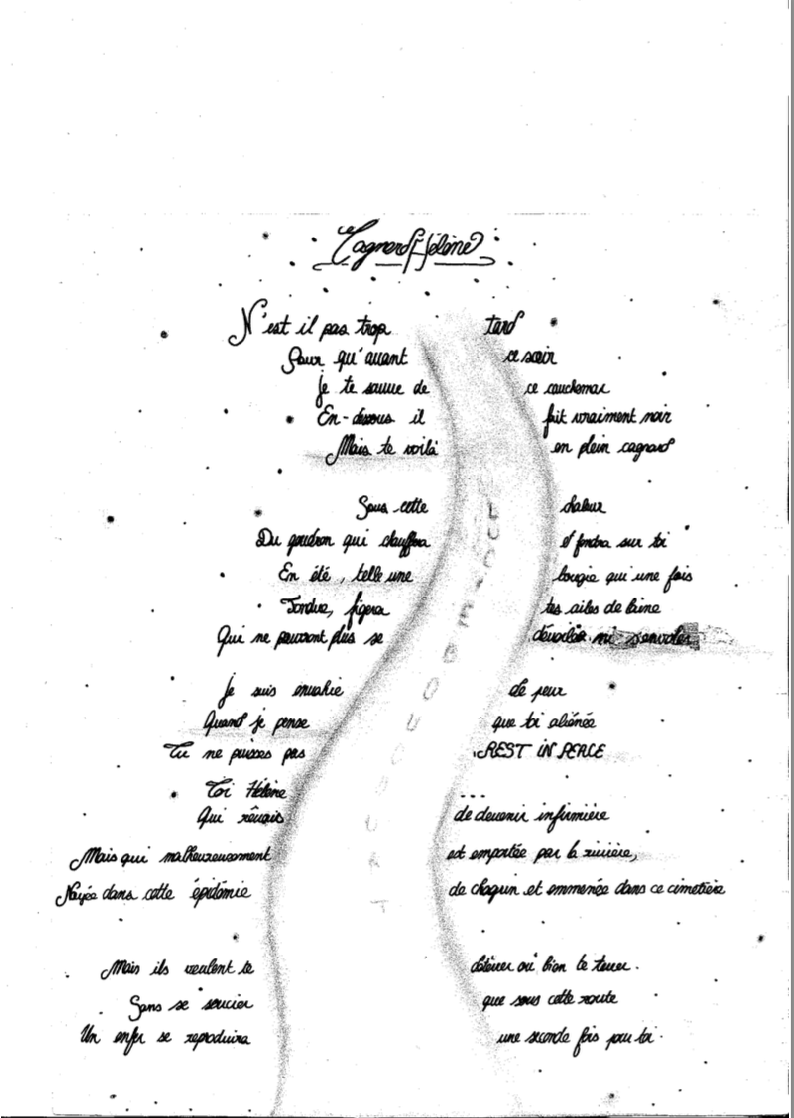 Cagnard Hélène
N'est il pas trop tard
Pour qu'avant ce soir
Je te sauve de ce cauchemar
En-dessous il fait vraiment noir
Mais te voilà en plein cagnard
Sous cette chaleur
Du goudron qui chauffera et fondra sur toi
En été, telle une bougie qui une fois
figera tes ailes de
Qui ne pourront plus se dévoiler ni s'envoler
Je suis envahie de peur
Quand je pense que toi aliénée
Tu ne puisses pas REST IN PEACE
Toi Hélène ...
Qui rêvais de devenir infirmière
Mais qui malheureusement est emportée par la rivière,
Noyée dans cette épidémie de chagrin et emmenée dans ce cimetière
Mais ils veulent te où bien te
Sans se soucier que sous cette route
Un enfer se reproduira une seconde fois pour toi.